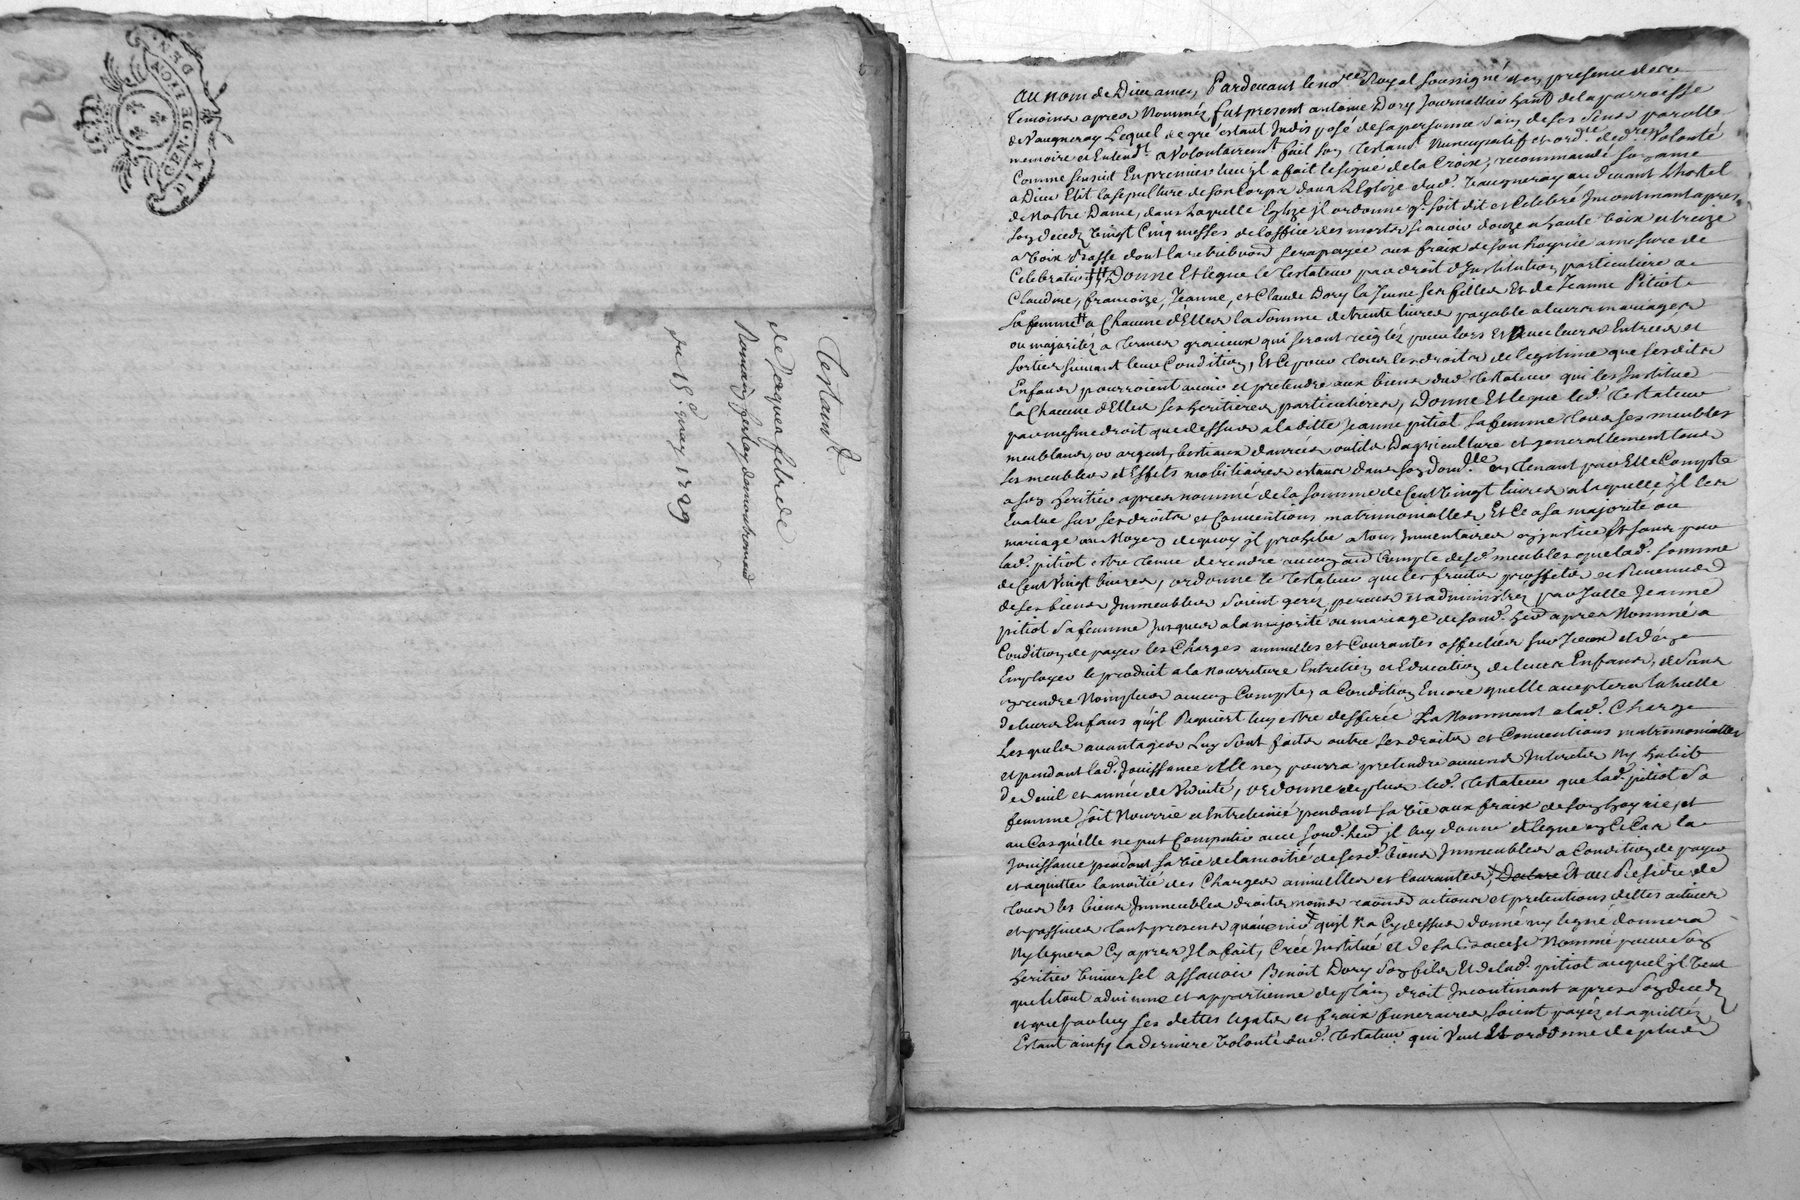 GE. LION
DEN. SIX DEN.
Testamt
de Jaques fibre de
Romain
du 18e may 1729
Au nom de Dieu amen, Pardevant le nore Royal soussigné et en presence des
temoins apres Nommés fut present antoine Dory Journallier hant de la parroisse
de Vaugneray Lequel de gré estant Indisposé de sa personne sain de ses sens parolle
memoire et Entendt a Volontairemt fait son testamt Nuncupatif et ordre de dre Volonté
Comme sensuit En premier lieu jl a fait le signe de la Croix, recommandé son ame
a Dieu Elit la sepulture de son Corps dans L'Eglize dud. Vaugneray au devant L'hostel
de Nostre Dame, dans Laquelle Eglize jl ordonne q. soit dit et Celebré Incontinant apres
son decedz Vingt Cinq messes de loffice des morts sçauoir douze a haute Voix et treize
a Voix basse dont la retribuon sera payée aux fraix de son hoyrie a mesure de
Celebration Donne Et legue le testateur par droit d'Institution particuliere a
Claudine, francoize, Jeanne, et Claude Dory la Jeune ses filles Et de Jeanne Pitiot
sa femme a Chacune d'Elles la somme de trente livres payable a leurs mariages
ou majoritez a termes gracieux qui seront reiglez pour lors Et avec leurs Entrées et
sorties suivant leur Condition, Et Ce pour tous les droits de legitime que sesdits
Enfans pourroient avoir et pretendre aux biens dud. testateur qui les Institue
Chacune d'Elles ses heritieres particulieres, Donne Et legue led. testateur
par mesme droit que dessus a laditte Jeanne pitiot sa femme tous ses meubles
meublans, or argent, bestiaux danrées outils D'agriculture et generallement tous
ses meubles et Effets mobiliaires estans dans son domlle en tenant par Elle Compte
a son heritier apres nommé de la somme de Cent Vingt livres a laquelle jl les
Evalue sur ses droits et Conventions matrimonialles Et Ce a sa majorité ou
mariage au Moyen dequoy jl prohibe a tous Inventaires en justice Et sans que
lad. pitiot estre tenue de rendre aucun aud Compte desd. meubles que lad. somme
de Cent Vingt livres, ordonne le testateur que les fruits proffits et Revenus
de ses biens Immeubles soient gerez perceus et administrez par Jcelle Jeanne
pitiot sa femme Jusques a la majorité ou mariage de sond. herer apres Nommé a
Condition de payer les Charges annuelles et Courantes affectées sur Jceux et d'en
Employer le produit a la Nourriture Entretien et Education de leurs Enfans, de sans
rendre Non plus aucun Compte, a Condition Encore quelle acceptera la tutelle
de leurs Enfans qu'jl Requiert luy estre defferée La Nommant a lad. Charge
Lesquels avantages Luy sont faits outre ses droits et Conventions matrimonialles
et pendant lad. Jouissance Elle nen pourra pretendre aucuns Interets Ny habits
de deuil et année de Viduité, ordonne deplus led. testateur que lad. pitiot sa
femme soit Nourrie et Entretenüe pendant sa vie aux fraix de son hoyrie, et
au Cas qu'elle ne put Compatir avec sond. herer jl luy donne et legue en ce Cas la
Jouissance pendant sa vie de la moitié de sesd. biens Immeubles a Condition de payer
et acquitter la moitié des Charges annuelles et Courantes, Et au Residu de
tous les biens Immeubles droits noms raisons actions et pretentions dettes actives
et passives tant presens qu'avenir qu'jl n'a Cy dessus donné ny legué donnera
Ny leguera Cy apres Jl a fait, Créé Institué et de sa bouche Nommé pour son
heritier Universel assavoir Benoit Dory son fils Et de lad. pitiot auquel jl veut
que le tout advienne et appartienne de plain droit Incontinant apres son decedz
et que par luy ses dettes legats et fraix funeraires soient payés et aquittés
Estant ainsy la derniere Volonté dud. testateur qui Veut Et ordonne deplus